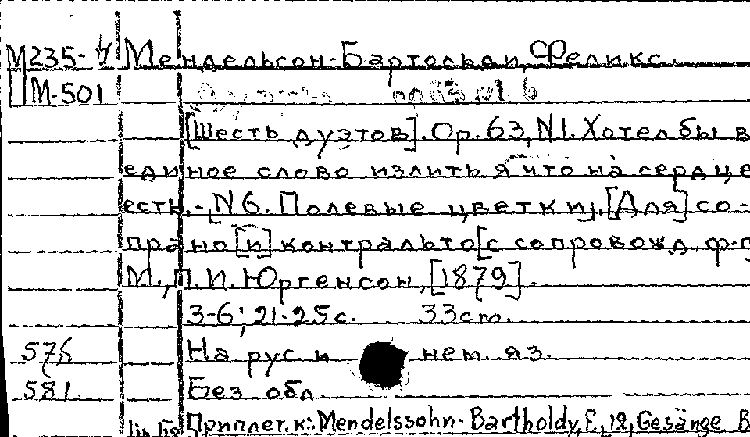 М235- Мендельсон-Бартольди, Феликс
Ш М-501
[Шесть дуэтов]. Op. 63, N1. Хотел бы в
единое слово излить я что на сердце
есть.-, N6. Полевые цветки]. [Для] со-
прано [и] контральто [с сопровожд. ф-п
М., П. И. Юргенсон, [1879].
3-6; 21-25 с. 33 cm.
576 На рус и нем. яз.
581 Без обл.
Приплет. к: Mendelssohn-Bartholdy, F., 12, Gesänge